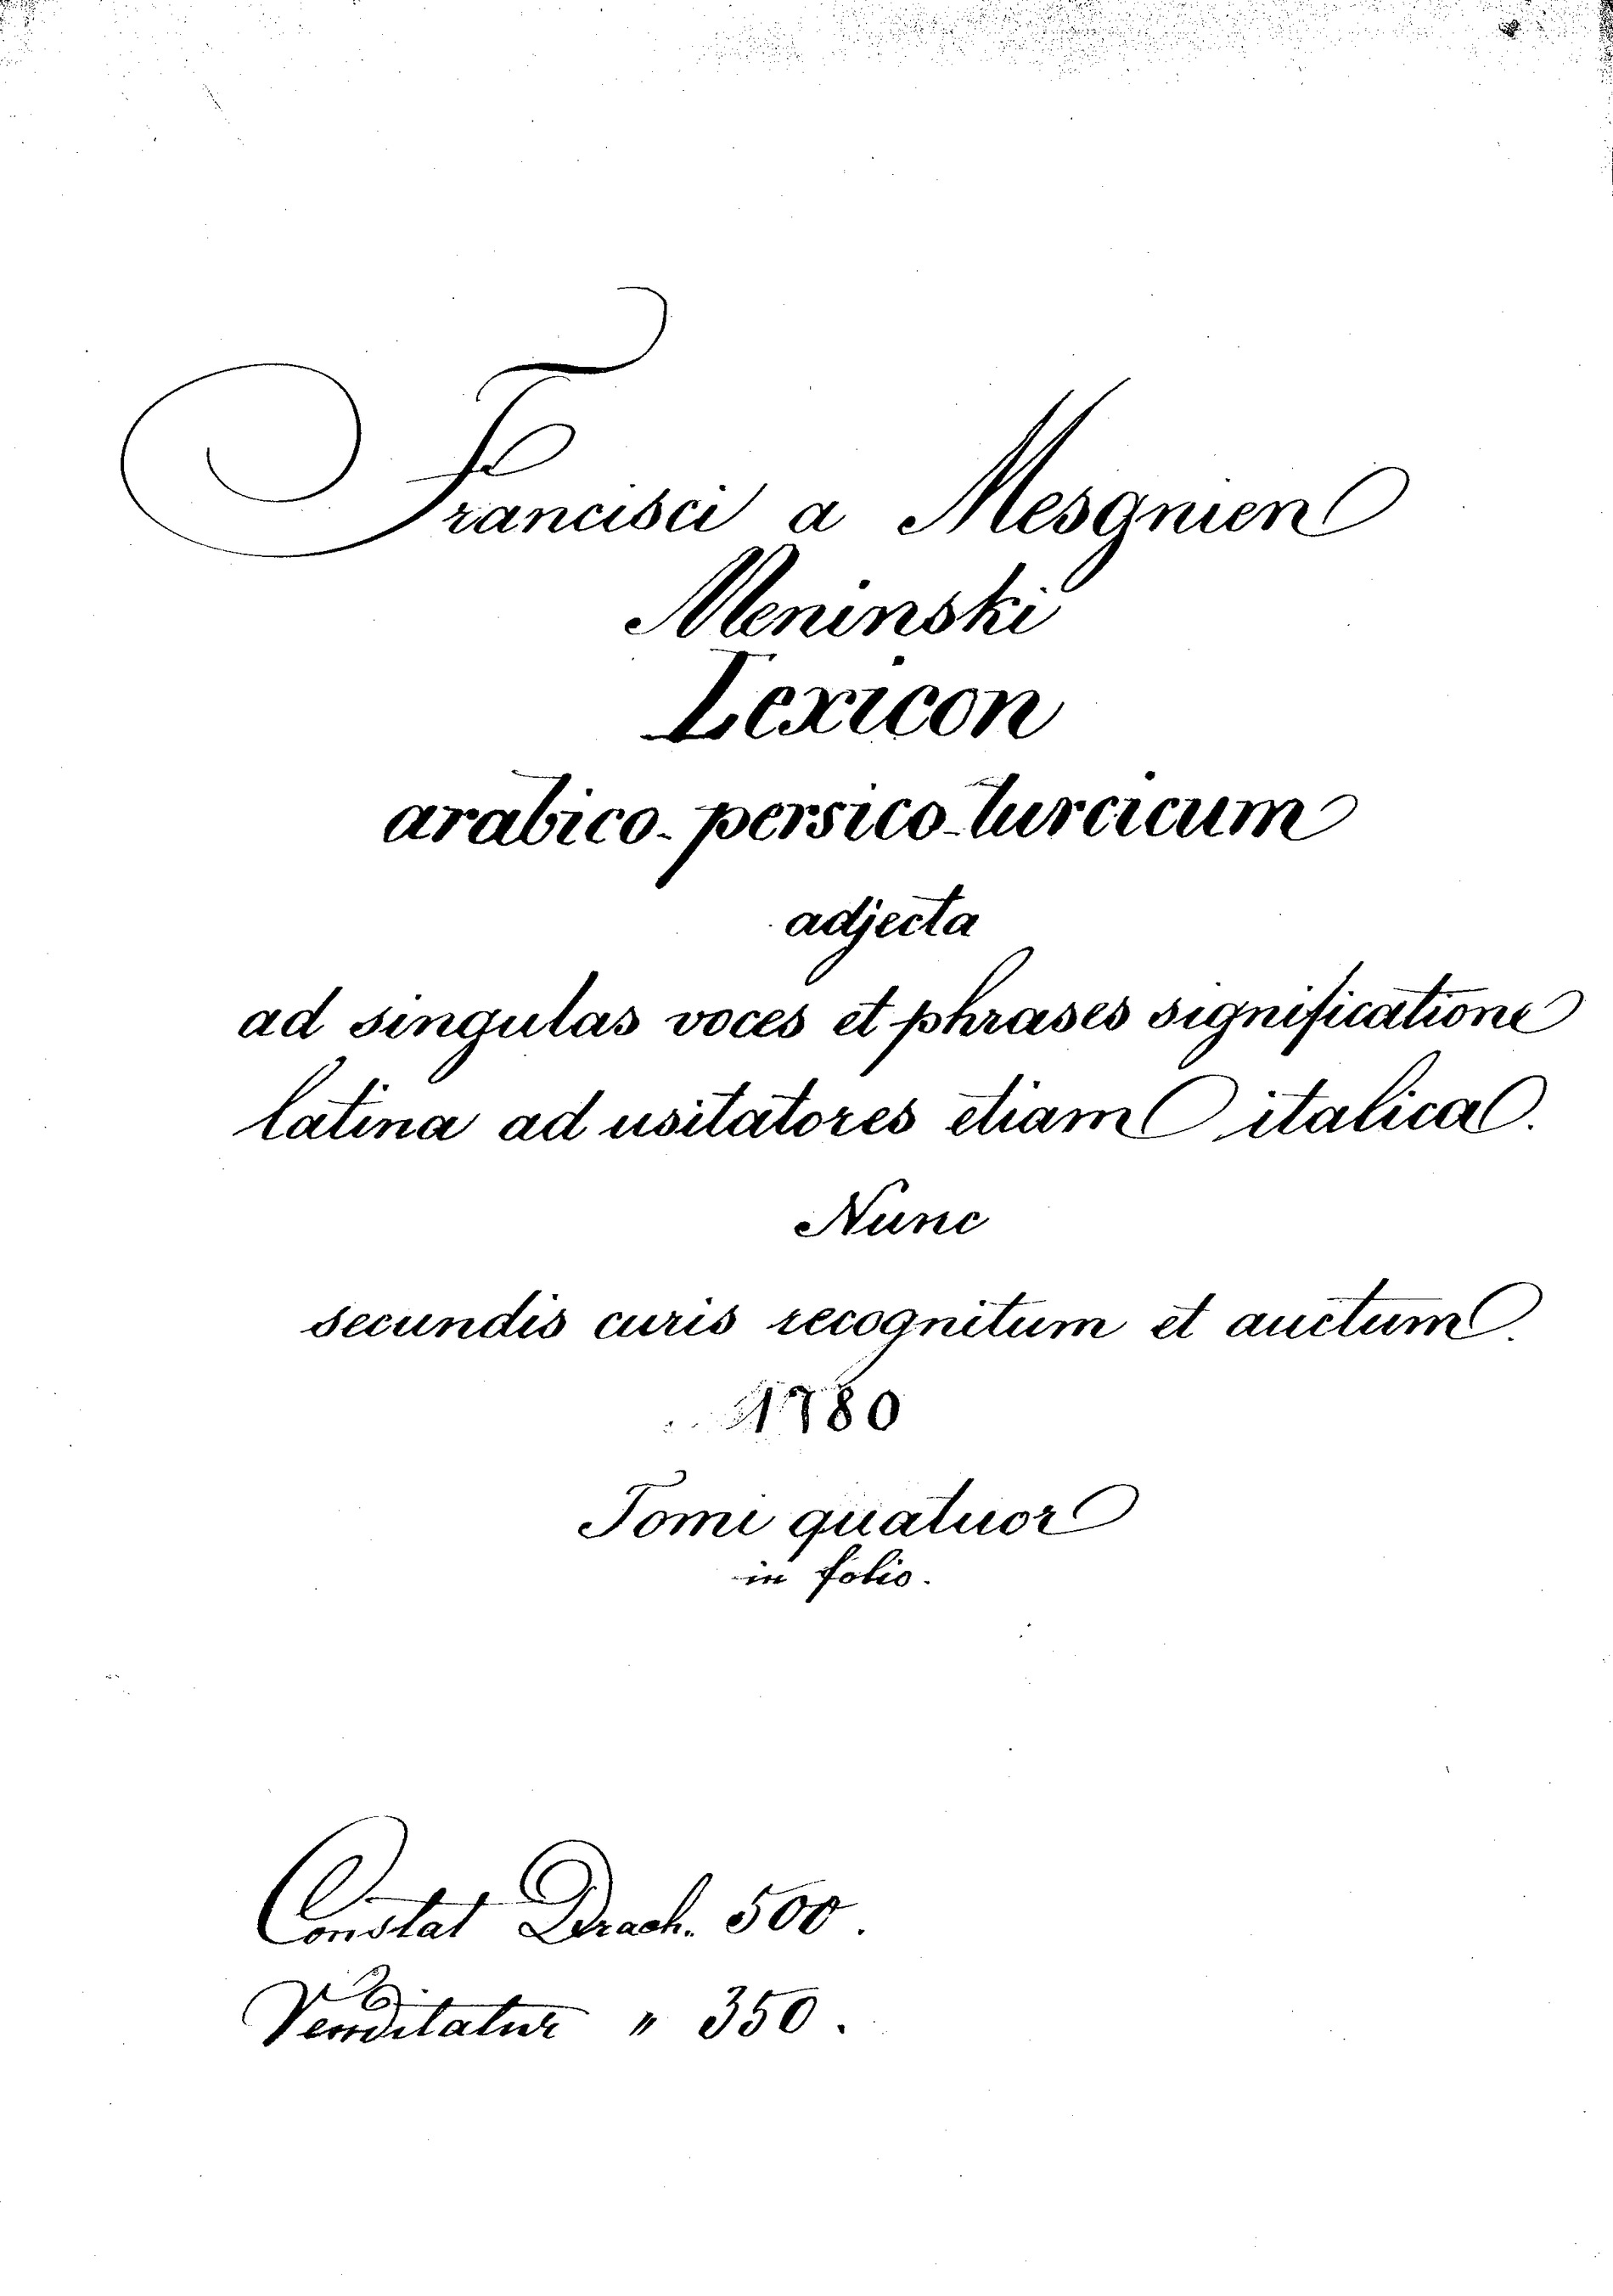 Francisci a Mesgnien
Meninski
Lexicon
arabico-persico-turcicum
adjecta
ad singulas voces et phrases significatione
latina ad usitatores etiam italica.
Nunc
secundis curis recognitum et auctum.
1780
Tomi quatuor
in folio.
Constat Drach. 500.
Venditatur " 350.